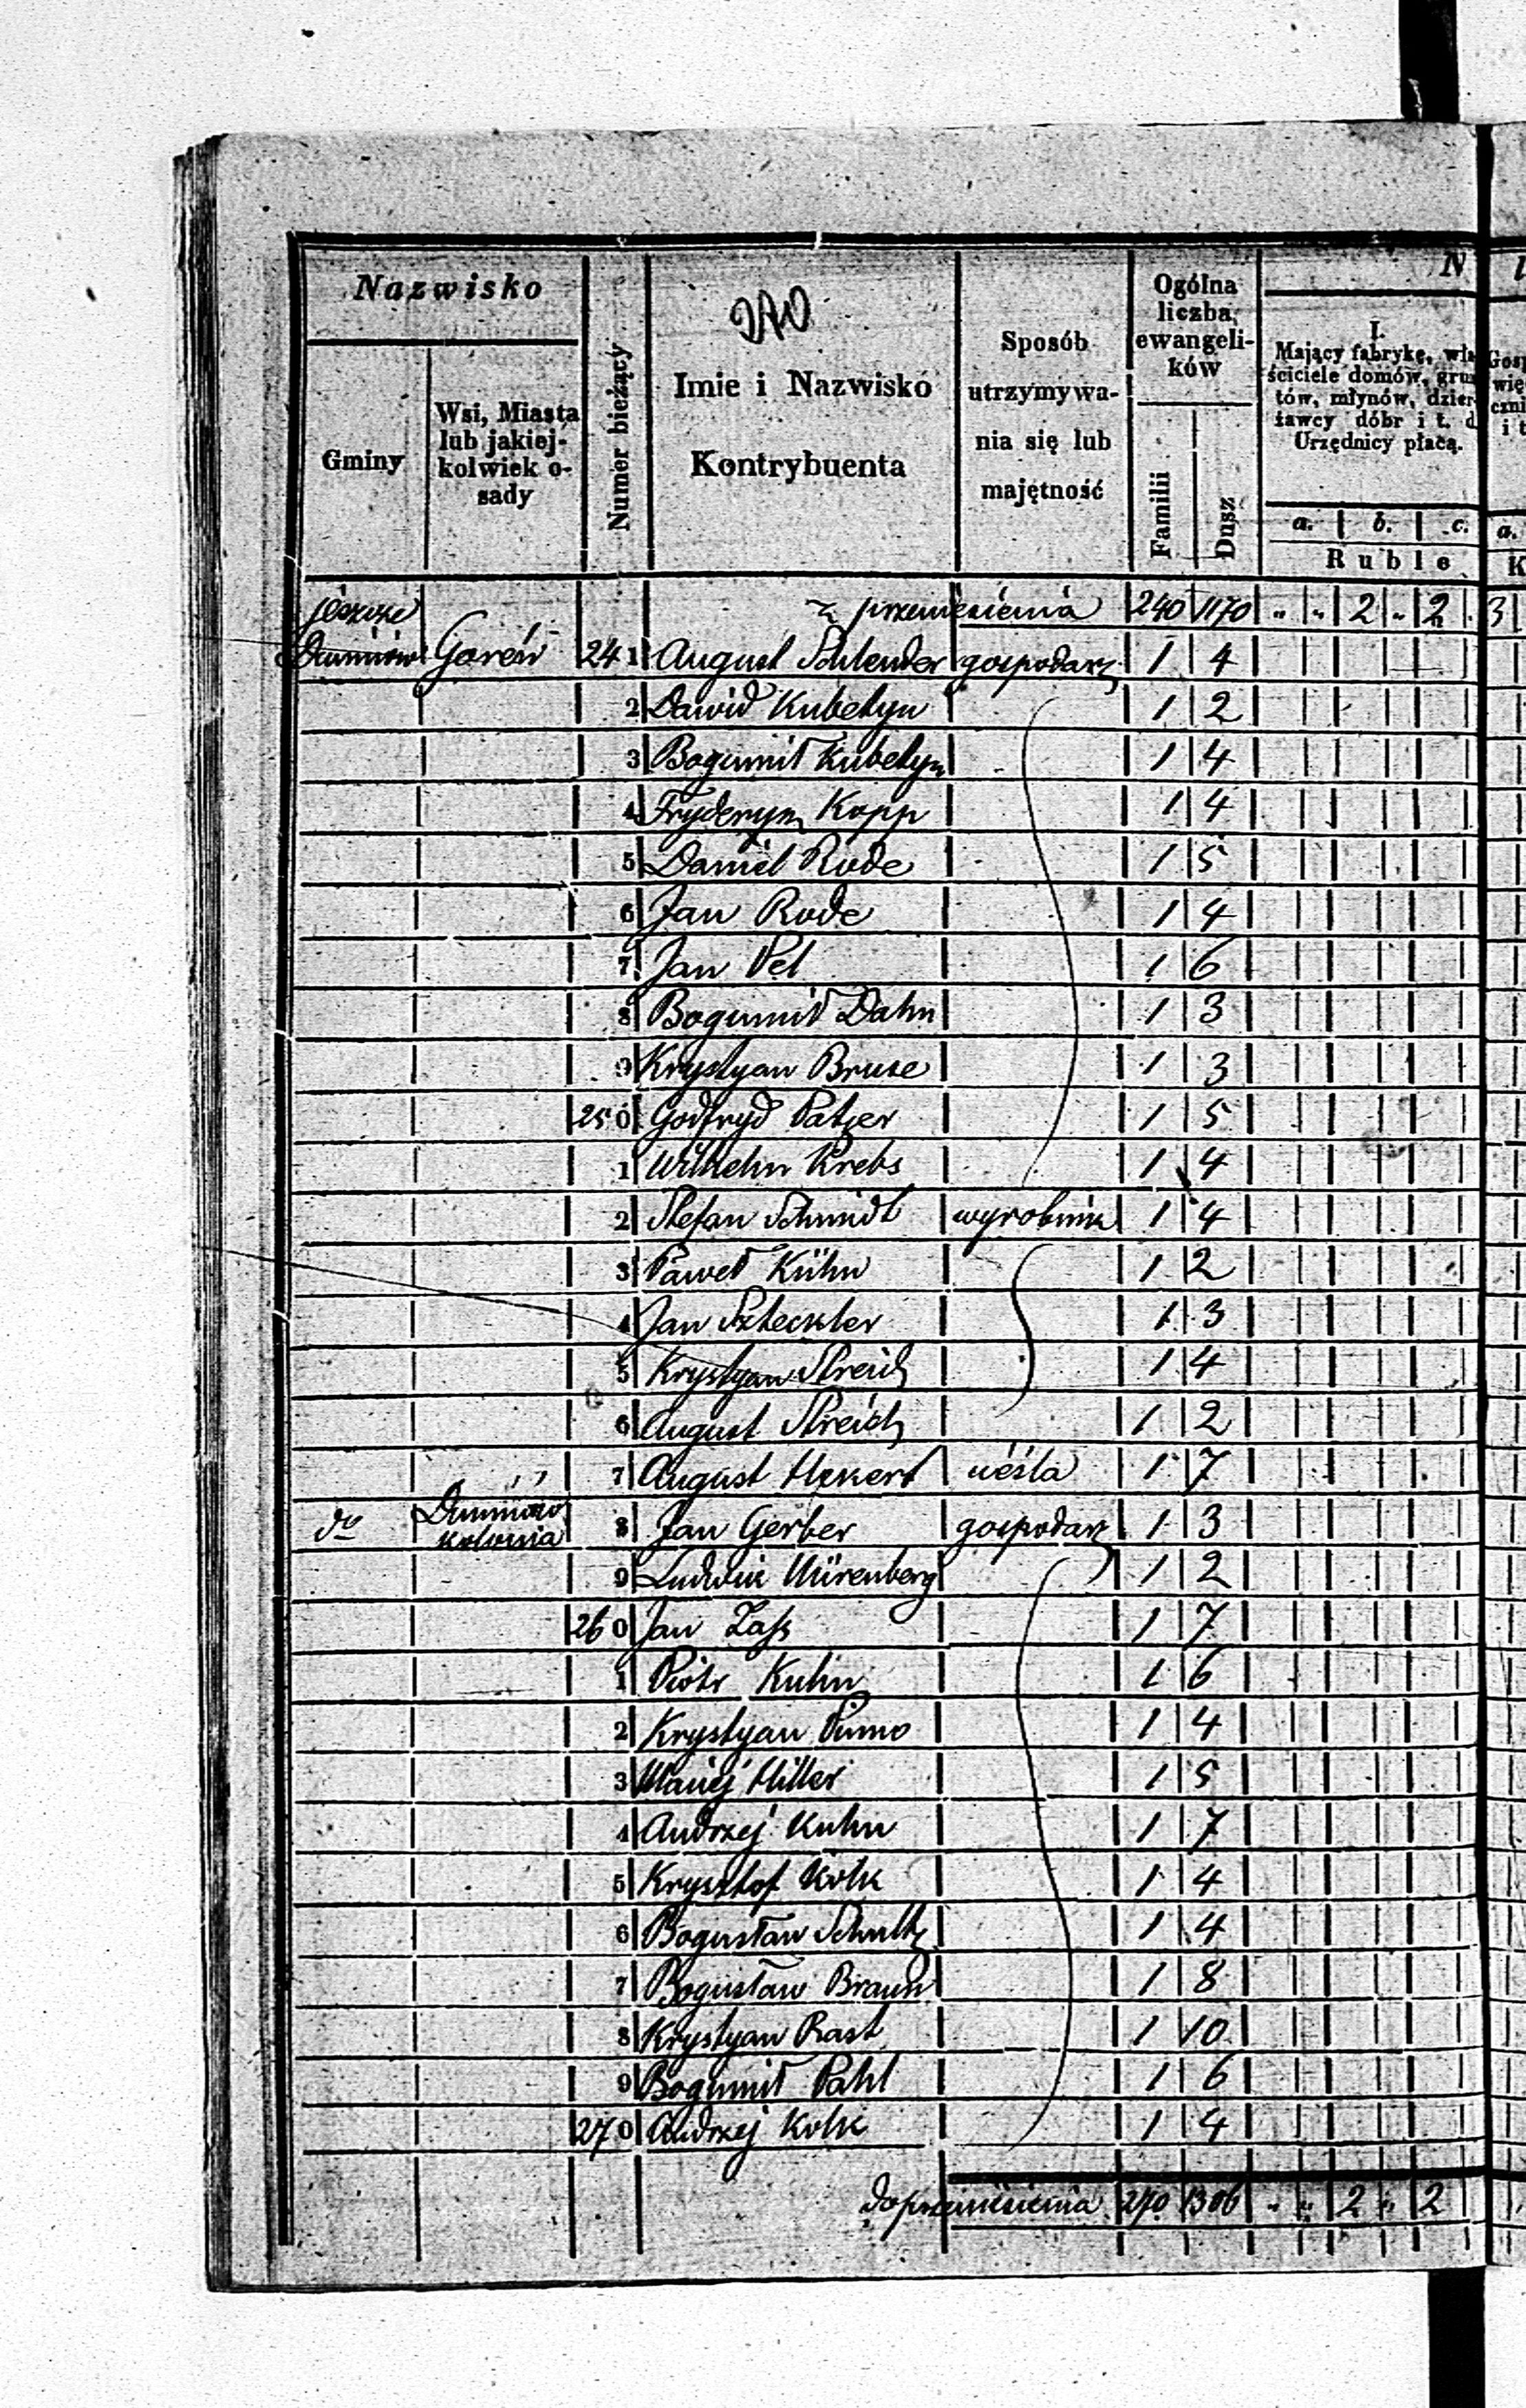 Nazwisko
Gminy
Wsi, Miasta
lub jakiej-
kolwiek o-
sady
Numer bieżący
270
Imie i Nazwisko
Kontrybuenta
Sposób
utrzymywa-
nia się lub
majętność
Ogólna
liczba
ewangeli-
ków
Familii
Dusz
N
I.
Mający fabrykę, wła-
ściciele domów, grun-
tów, młynów, dzier-
żawcy dóbr i t. d.
Urzędnicy płacą.
a. b. c.
Ruble
jeszcze z przeniesienia 240 1170 " " 2 " 2 3
Gorén 241 August Schlender gospodarz 1 4
2 Dawid Kubetyn 1 2
3 Bogumił Kubetyn 1 4
4 Fryderyk Kopp 1 4
5 Daniel Rode 1 5
6 Jan Rode 1 4
7 Jan Pel 1 6
8 Bogumił Dahn 1 3
9 Krystyan Bruse 1 3
250 Godfryd Patzer 1 5
1 Wilhelm Krebs 1 4
2 Stefan Schmidt wyrobnik 1 4
3 Paweł Kühn 1 2
4 Jan Szteckler 1 3
5 Krystyan Streich 1 4
6 August Streich 1 2
7 August Hekert cieśla 1 7
do kolonia 8 Jan Gerber gospodarz 1 3
9 Ludwik Nürenberg 1 2
260 Jan Zass 1 7
1 Piotr Kuhn 1 6
2 Krystyan Pumo 1 4
3 Maciej Hiller 1 5
4 Andrzej Kuhn 1 7
5 Krysztof Kolk 1 4
6 Bogusław Schultz 1 4
7 Bogusław Braun 1 8
8 Krystyan Rast 1 10
9 Bogumił Pahl 1 6
270 Andrzej Kolk 1 4
do przeniesienia 270 1306 " " 2 " 2